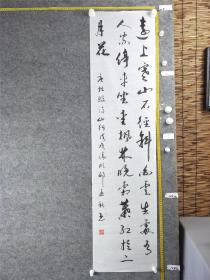 遠上寒山石徑斜白雲生處有
人家停車坐愛楓林晚霜葉紅於二
月花
唐杜牧詩山行戊戌